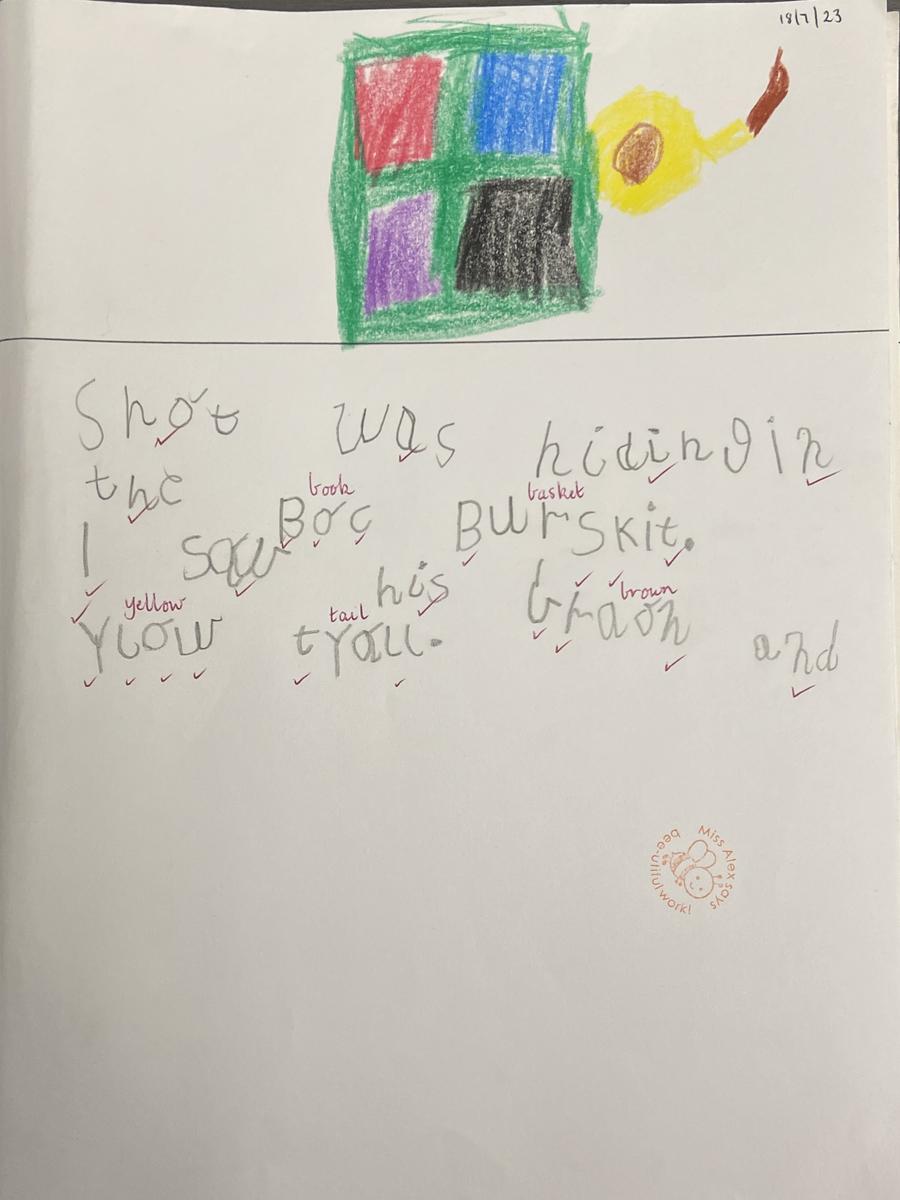 18/7/23
Shot was hidinginn
the book basket
Boc Burskit.
I saw his yellow tail brown
Ylow tyall. braon and
Miss Alex says
bee-utiful work!